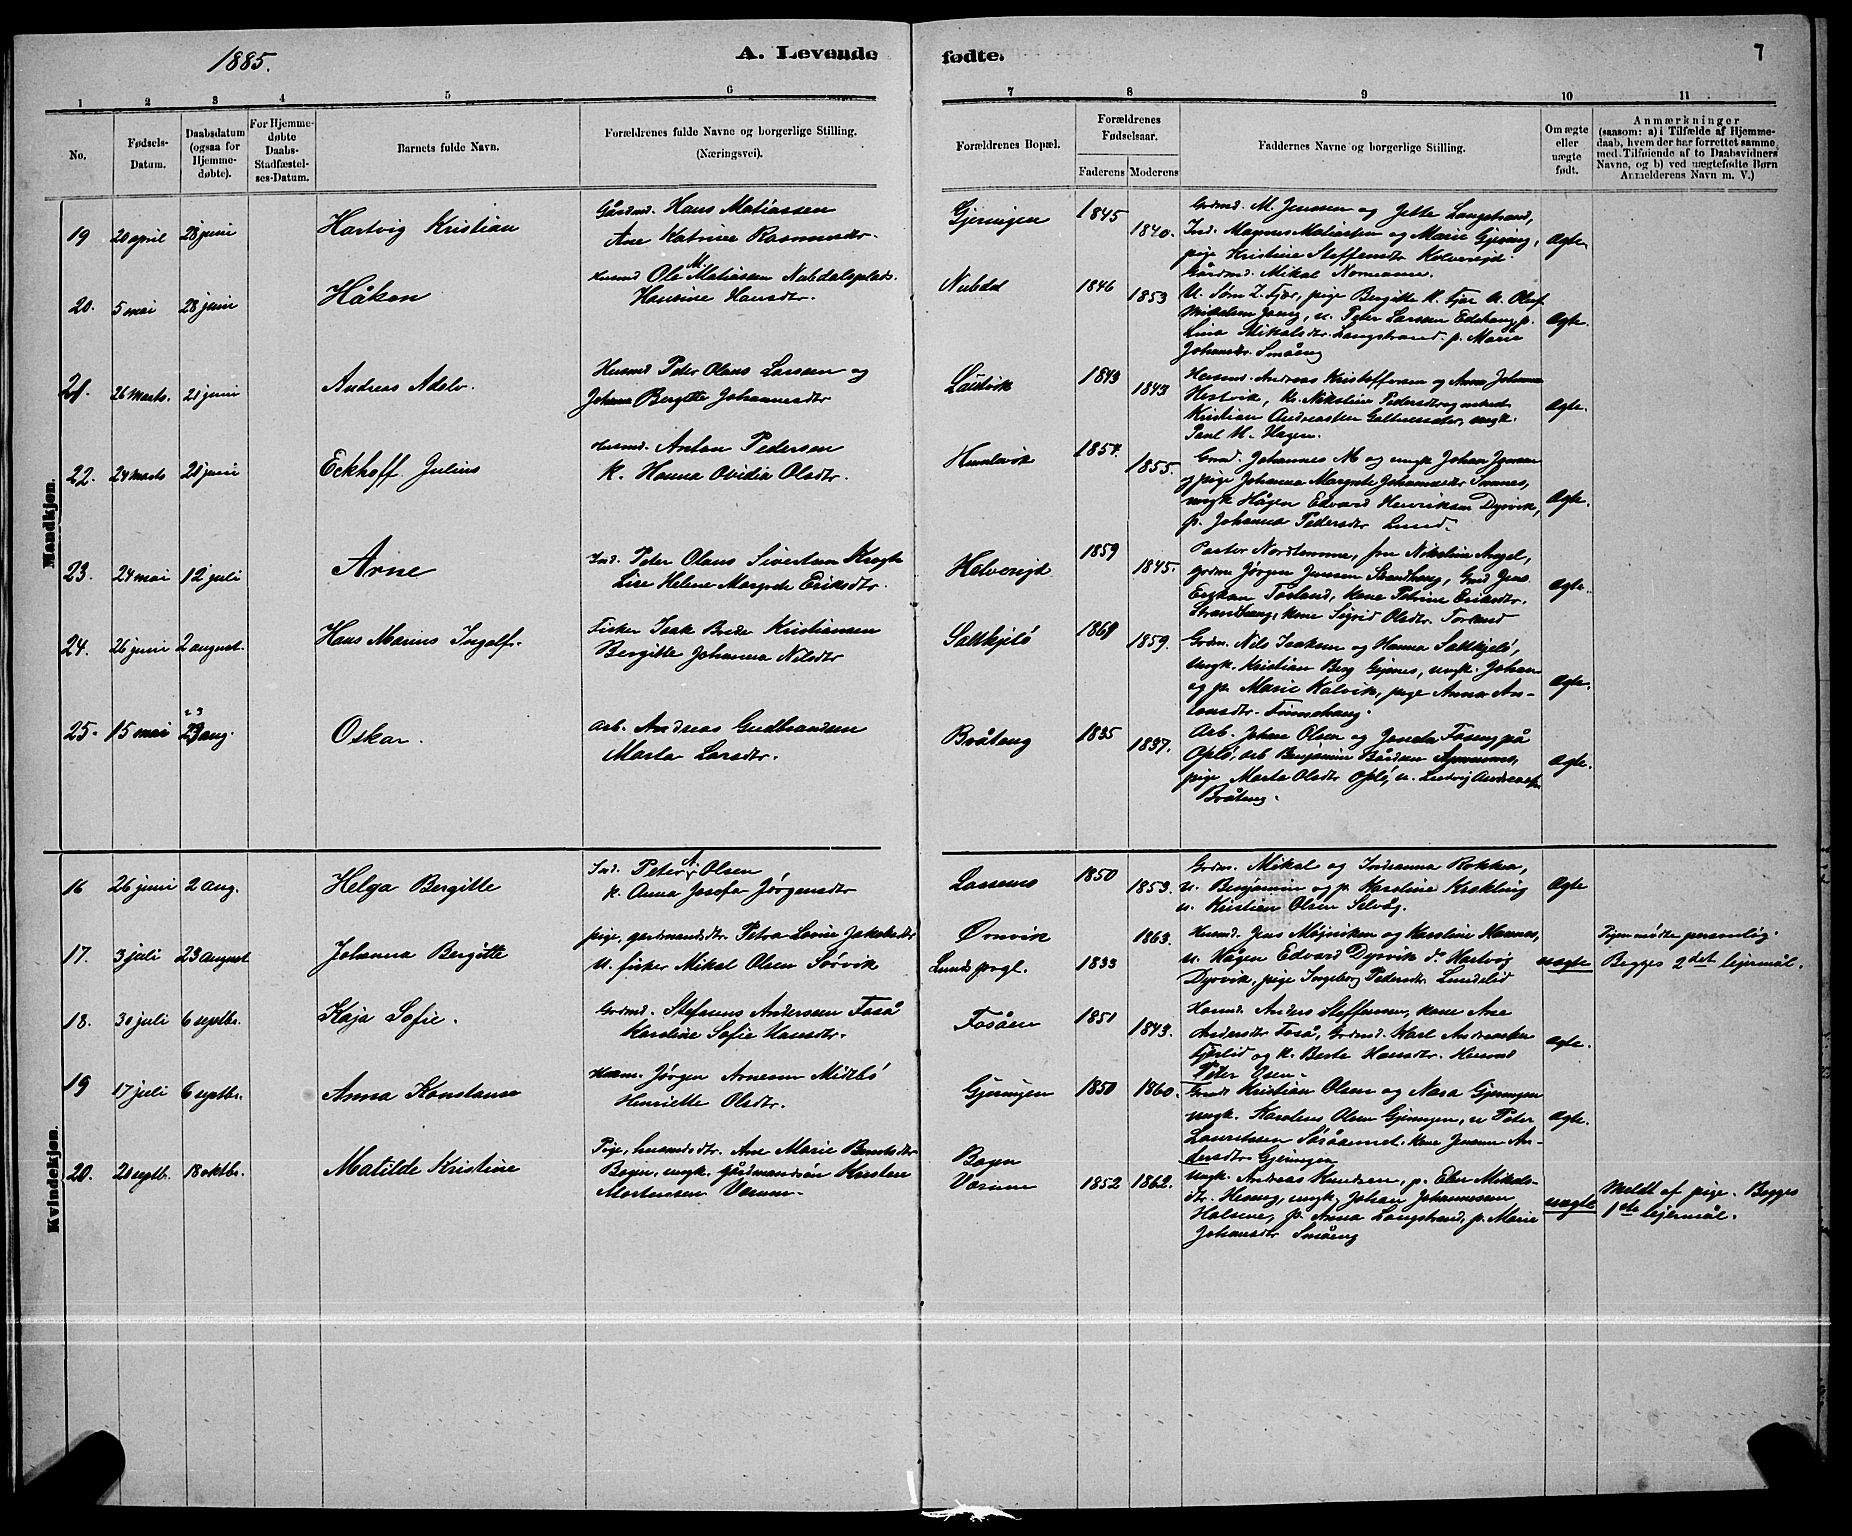 1885.
A. Levende
fødte.
7
1
2
3
4
5
6
7
8
9
10
11
No.
Fødsels-
Datum.
Daabsdatum
(ogsaa for
Hjemme-
døbte).
For Hjemme-
døbte
Daabs-
Stadfæstel-
ses-Datum.
Barnets fulde Navn.
Forældrenes fulde Navne og borgerlige Stilling.
(Næringsvei).
Forældrenes Bopæl.
Forældrenes
Fødselsaar.
Faderens
Moderens
Faddernes Navne og borgerlige Stilling.
Om ægte
eller
uægte
født.
Anmærkninger
(saasom: a) i Tilfælde af Hjemme-
daab, hvem der har forrettet samme
med Tilføiende af to Daabsvidners
Navne, og b) ved uægtefødte Børn
Anmelderens Navn m. V.)
Mandkjøn.
19
20 april
28 juni
Hartvig Kristian
Gårdmd. Hans Matiassen
Ane Katrine Rasmusdtr.
Gjeringen
1845
1840.
Grdmd. M. Jenssen og Jette Langstrand,
Ind. Magnus Matiassen og Marie Gjering,
pige Kristine Steffensdtr Kolvereid
Gårdmd. Mikal Normann.
Ægte
20.
5 mai
28 juni
Håkon
Husmd Ole M. Matiassen Nubdalsplads.
Hansine Hansdtr.
Nubdal
1846
1853
U. Sørn Z. Fjær, pige Bergitte K. Fjær U. Oluf
Mikalsen Joeng, u. Peter Larssen Edshaug, p.
Lina Mikalsdtr. Langstrand. p. Marie
Johansdtr. Småeng
Ægte.
21.
26 Marts.
21 juni
Andreas Adolv.
Husmd Peter Olaus Larssen og
Johana Bergitte Johannesdtr
Laudvik
1843
1843
Husmd. Andreas Kristoffersen og Anna Johanna
Hestvik, k. Nikoline Pedersdtr og
Kristian Andreassen ungk.
Paul M. Hagen.
Ægte.
22.
24 Marts
21 juni
Eckhoff Julius
Husmd. Anton Pedersen
k. Hanna Ovidia Olsdtr.
Hundvik
1854.
1855.
Grmd. Johannes M og ungk Johan
og pige Johanna Margrete Johannesdtr
ungk Hågen Edvard Henriksen Dyrvik,
p. Johanna Pedersdtr Lund.
Ægte.
23.
24 mai
12 juli
Arne
Ind. Peter Olaus Sivertsen Krogh
Lise Helene Margrete Eriksdtr.
Kolvereid
1859
1845.
Pastor Nordtømme, fru Nikoline Angel,
grdm Jørgen Jenssen Strandhaug, Grmd Jens
Eriksen Torland, kone Petrine Eriksdtr.
Strandhaug, kone Sigrid Olsdtr. Torland
Ægte.
24.
26 juni
2 august.
Hans Marius Ingolf.
Fisker Isak Brede Kristiansen
Bergitte Johanna Nilsdtr
Saltkjelø
1861
1859.
Grdm. Nils Isaksen og Hanna Saltkjelø,
ungk. Kristian Berg Gjesnes, ungk. Johan
og p. Marie Kalvik, pige Anna An-
tonsdtr. Finnehaug.
Ægte.
25.
15 mai
23
23 aug.
Oskar.
Arb. Andreas Gudbrandsen
Marta Larsdtr.
Bråteng
1835
1837.
Arb. Johan Olsen og Joneta Foseng på
Opløi, arb Benjamin Bårdsen
pige Marta Olsdtr Opløi, u. Ludvig Andreassen
Bråteng.
Ægte.
Kvindekjøn.
16
26 juni
2 aug.
Helga Bergitte
Ind. Peter N. Olsen
k. Anna Josefa Jørgensdtr
Lassemo
1850
1853.
Grdm. Mikal og Indianna Rokka,
u. Benjamin og p. Karoline Krækling
u. Kristian Olsen Selvåg.
Ægte
17.
3 juli
23 august
Johanna Bergitte
pige, gardmandsdtr. Petra Lovise Jakobsdtr
U. fisker Mikal Olsen Sørvik
Ørnvik
Lunds prgl.
1833
1863.
Husmd. Jens Møjniken og Karoline Hamnes,
u. Hågen Edvard Dyrvik d. Hartvig
Dyrvik, pige Ingeborg Pedersdtr Lundslid
uægte
Pigen mødte personlig.
Begges 2det lejermål.
18.
30 juli
6 septbr.
Kaja Sofie.
Grdmd. Stefanus Anderssen Foså
Karoline Sofie Hansdtr.
Fosåen
1851
1843.
Husmd. Anders Steffensen, kone Ane
Andersdtr Foså, Grdmd. Karl Andreassen
Fjerlid og k. Berte Hansdtr. Husmd
Peter Ysen.
Ægte.
19
17 juli
6 septbr.
Anna Konstanse
Husm. Jørgen Arnesen Midtbø
Henriette Olsdtr.
Gjeringen
1850
1860.
Grmd. Kristian Olsen og Nora Gjeringen
ungk. Karolius Olsen Gjeringen, u Peter
Lauritssen Søråunet. kone Jensine An-
dersdtr. Gjeringen
Ægte.
20.
20 septb.
18 oktbr.
Matilde Kristine
Pige, husmdsdtr. Ane Marie Berntsdtr
Bogen, ungk. gårdmandssøn Kristen
Mortensen Værum.
Bogen
Værum
1852
1862.
Ungk. Andreas Knudsen, p. Elen Mikals-
dtr. Hesteng, ungk. Johan Johannessen
Halsene, p. Anna Langstrand, p. Marie
Johansdtr Småeng
uægte
Meldt af pige. Begges
1ste lejermål.